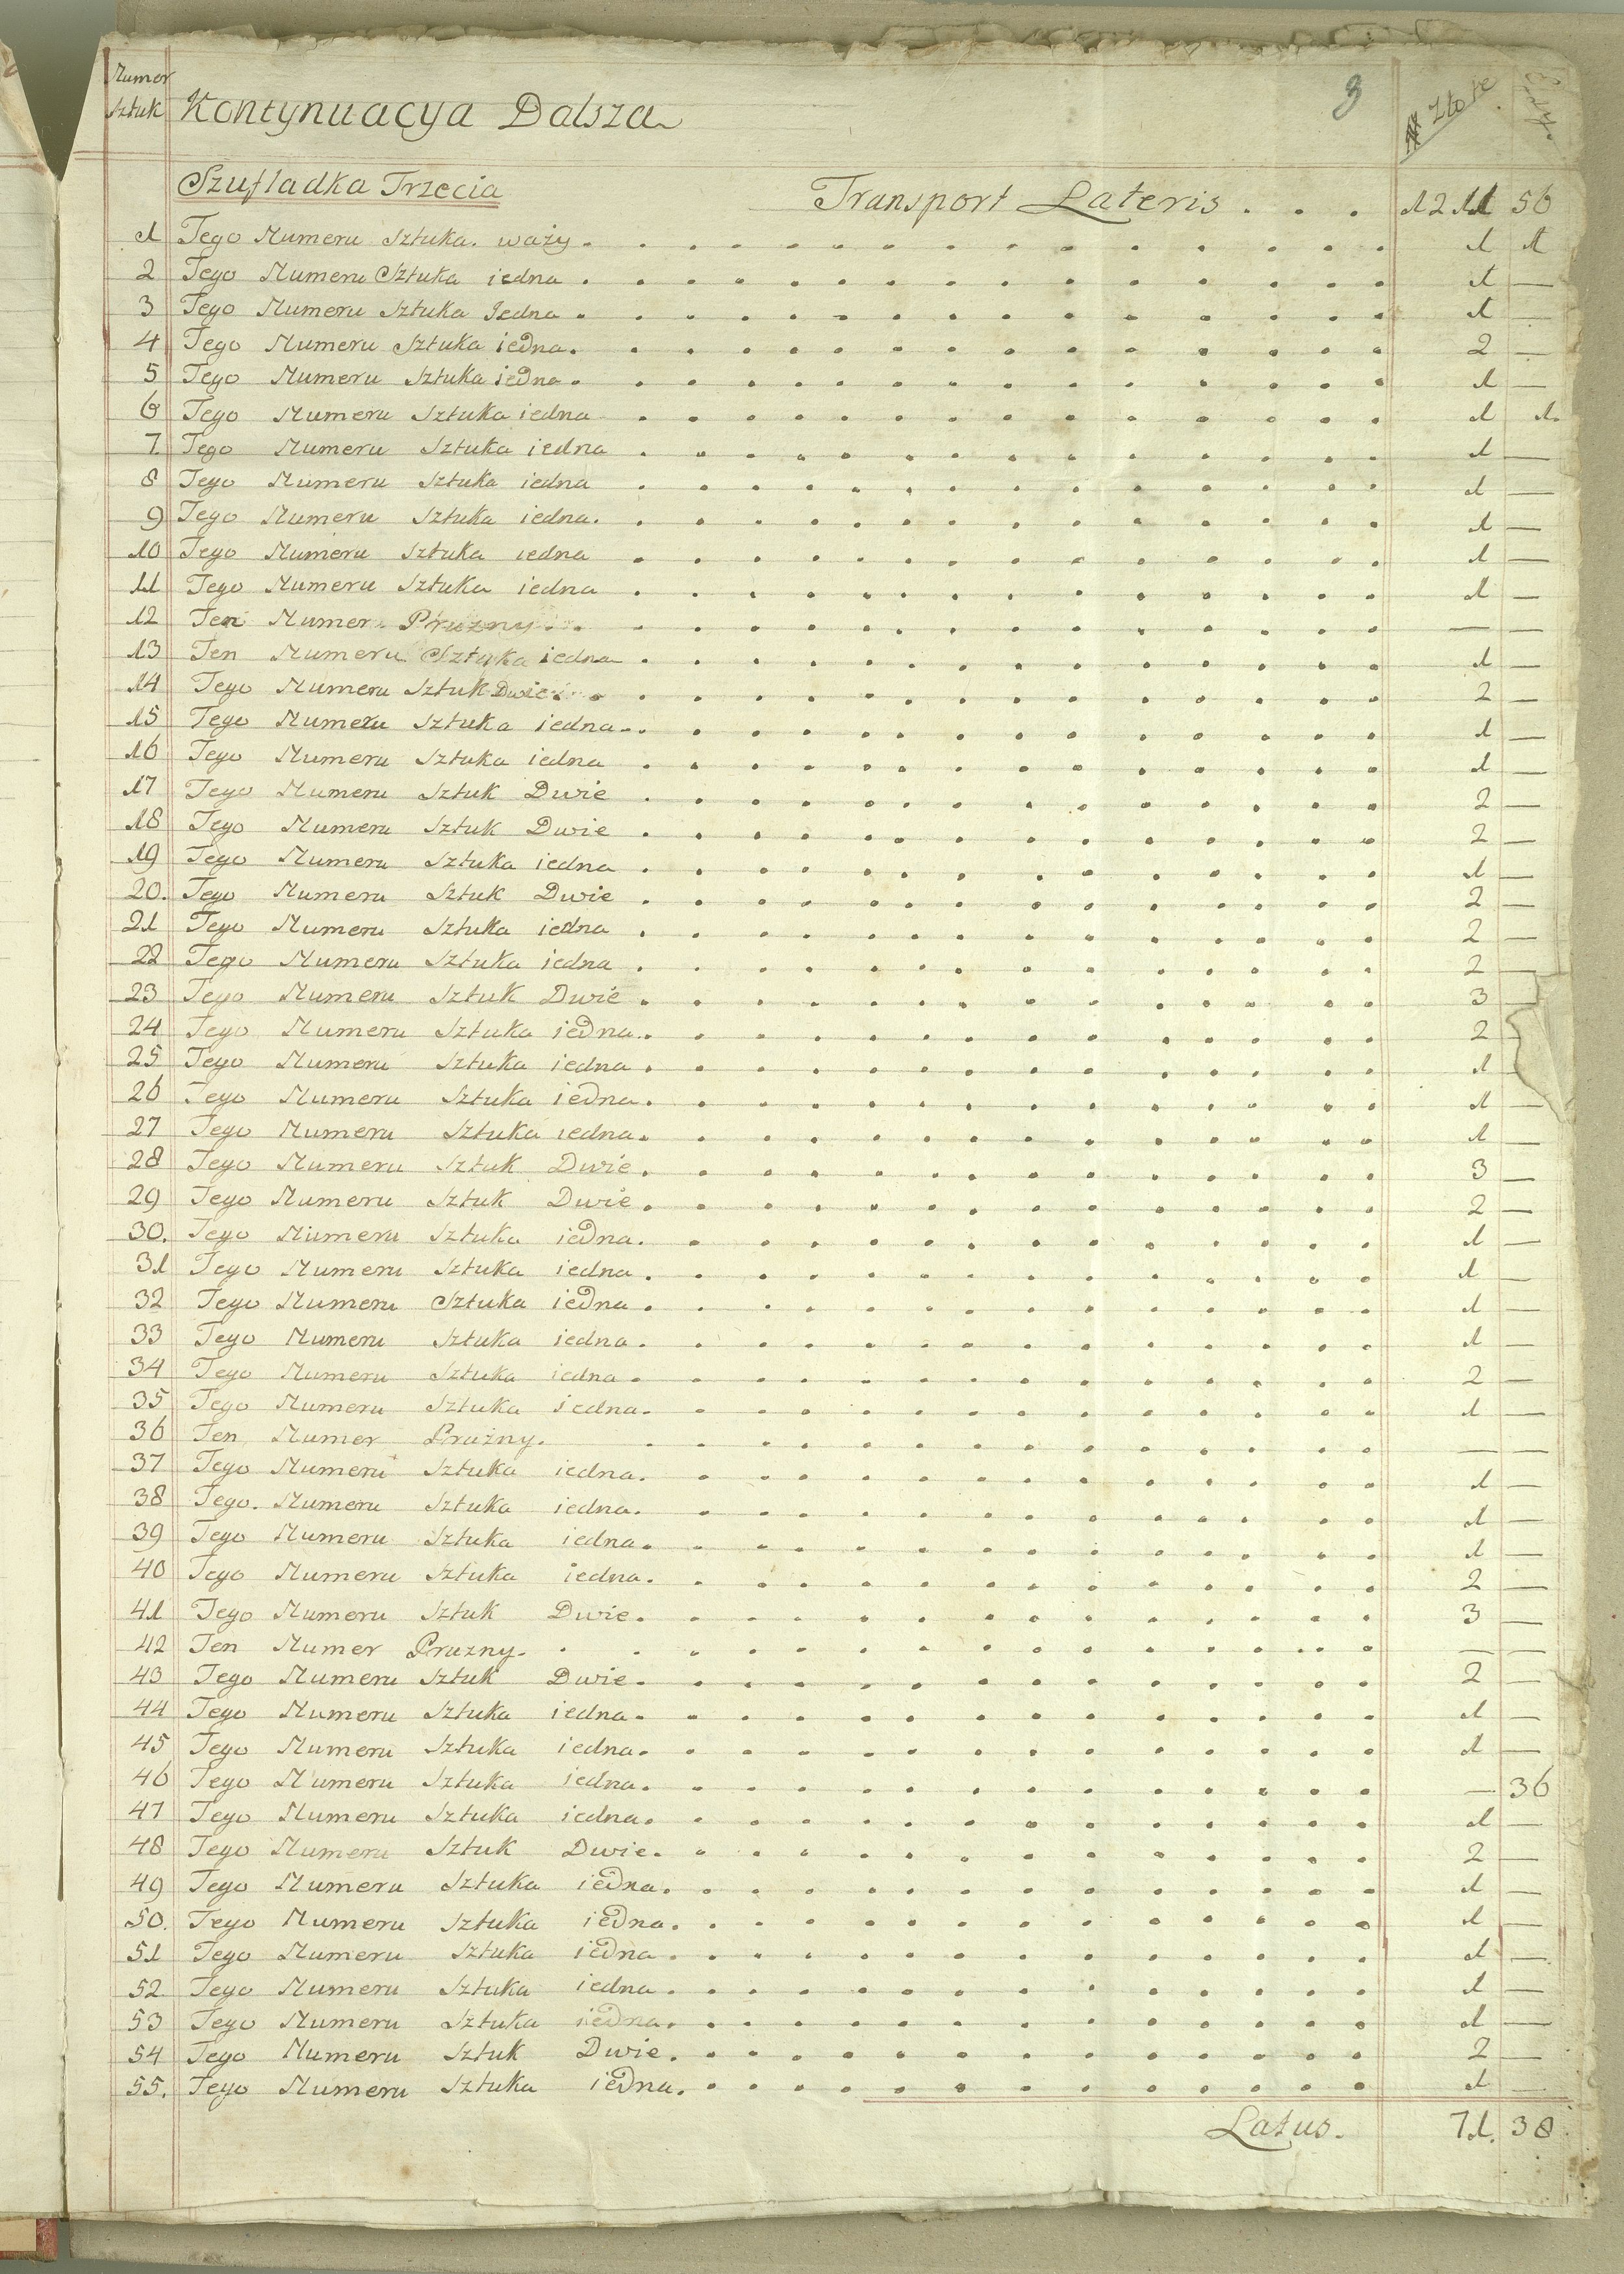 Numer
Sztuk Kontynuacya Dalsza 3 # Złote
Szufladka Trzecia Transport Lateris . . . 1211 56
1 Tego Numeru Sztuka. waży. 1 1
2 Tego Numeru Sztuka iedna . 1 —
3 Tego Numeru Sztuka Jedna . 1 —
4 Tego Numeru Sztuka iedna. 2 —
5 Tego Numeru Sztuka iedna . 1 —
6 Tego Numeru Sztuka iedna 1 1.
7. Tego Numeru Sztuka iedna . 1 —
8 Tego Numeru Sztuka iedna . 1 —
9 Tego Numeru Sztuka iedna. 1 —
10 Tego Numeru Sztuka iedna . 1 —
11 Tego Numeru Sztuka iedna . 1 —
12 Ten Numer. Pruzny . . — —
13 Ten Numeru Sztuka iedna . 1 —
14 Tego Numeru Sztuk Dwie . 2 —
15 Tego Numeru Sztuka iedna . . 1 —
16 Tego Numeru Sztuka iedna . 1 —
17 Tego Numeru Sztuk Dwie . 2 —
18 Tego Numeru Sztuk Dwie . 2 —
19 Tego Numeru Sztuka iedna . 1 —
20. Tego Numeru Sztuk Dwie . 2 —
21 Tego Numeru Sztuka iedna . 2 —
22 Tego Numeru Sztuka iedna . 2 —
23 Tego Numeru Sztuk Dwie . 3 —
24 Tego Numeru Sztuka iedna . . 2 —
25 Tego Numeru Sztuka iedna . 1 —
26 Tego Numeru Sztuka iedna . 1 —
27 Tego Numeru Sztuka iedna . 1 —
28 Tego Numeru Sztuk Dwie . 3 —
29 Tego Numeru Sztuk Dwie . 2 —
30. Tego Numeru Sztuka iedna . 1 —
31 Tego Numeru Sztuka iedna . 1 —
32 Tego Numeru Sztuka iedna . 1 —
33 Tego Numeru Sztuka iedna . 1 —
34 Tego Numeru Sztuka iedna . 2 —
35 Tego Numeru Sztuka iedna . 1 —
36 Ten Numer Pruzny. — —
37 Tego Numeru Sztuka iedna . 1 —
38 Tego. Numeru Sztuka iedna . 1 —
39 Tego Numeru Sztuka iedna . 1 —
40 Tego Numeru Sztuka iedna . 2 —
41 Tego Numeru Sztuk Dwie . 3 —
42 Ten Numer Pruzny. — —
43 Tego Numeru Sztuk Dwie . 2 —
44 Tego Numeru Sztuka iedna . 1 —
45 Tego Numeru Sztuka iedna . 1 —
46 Tego Numeru Sztuka iedna . — 36
47 Tego Numeru Sztuka iedna . 1 —
48 Tego Numeru Sztuk Dwie . 2 —
49 Tego Numeru Sztuka iedna . 1 —
50. Tego Numeru Sztuka iedna . 1 —
51 Tego Numeru Sztuka iedna . 1 —
52 Tego Numeru Sztuka iedna . 1 —
53 Tego Numeru Sztuka iedna . 1 —
54 Tego Numeru Sztuk Dwie . 2 —
55. Tego Numeru Sztuka iedna . 1 —
Latus. 71. 38